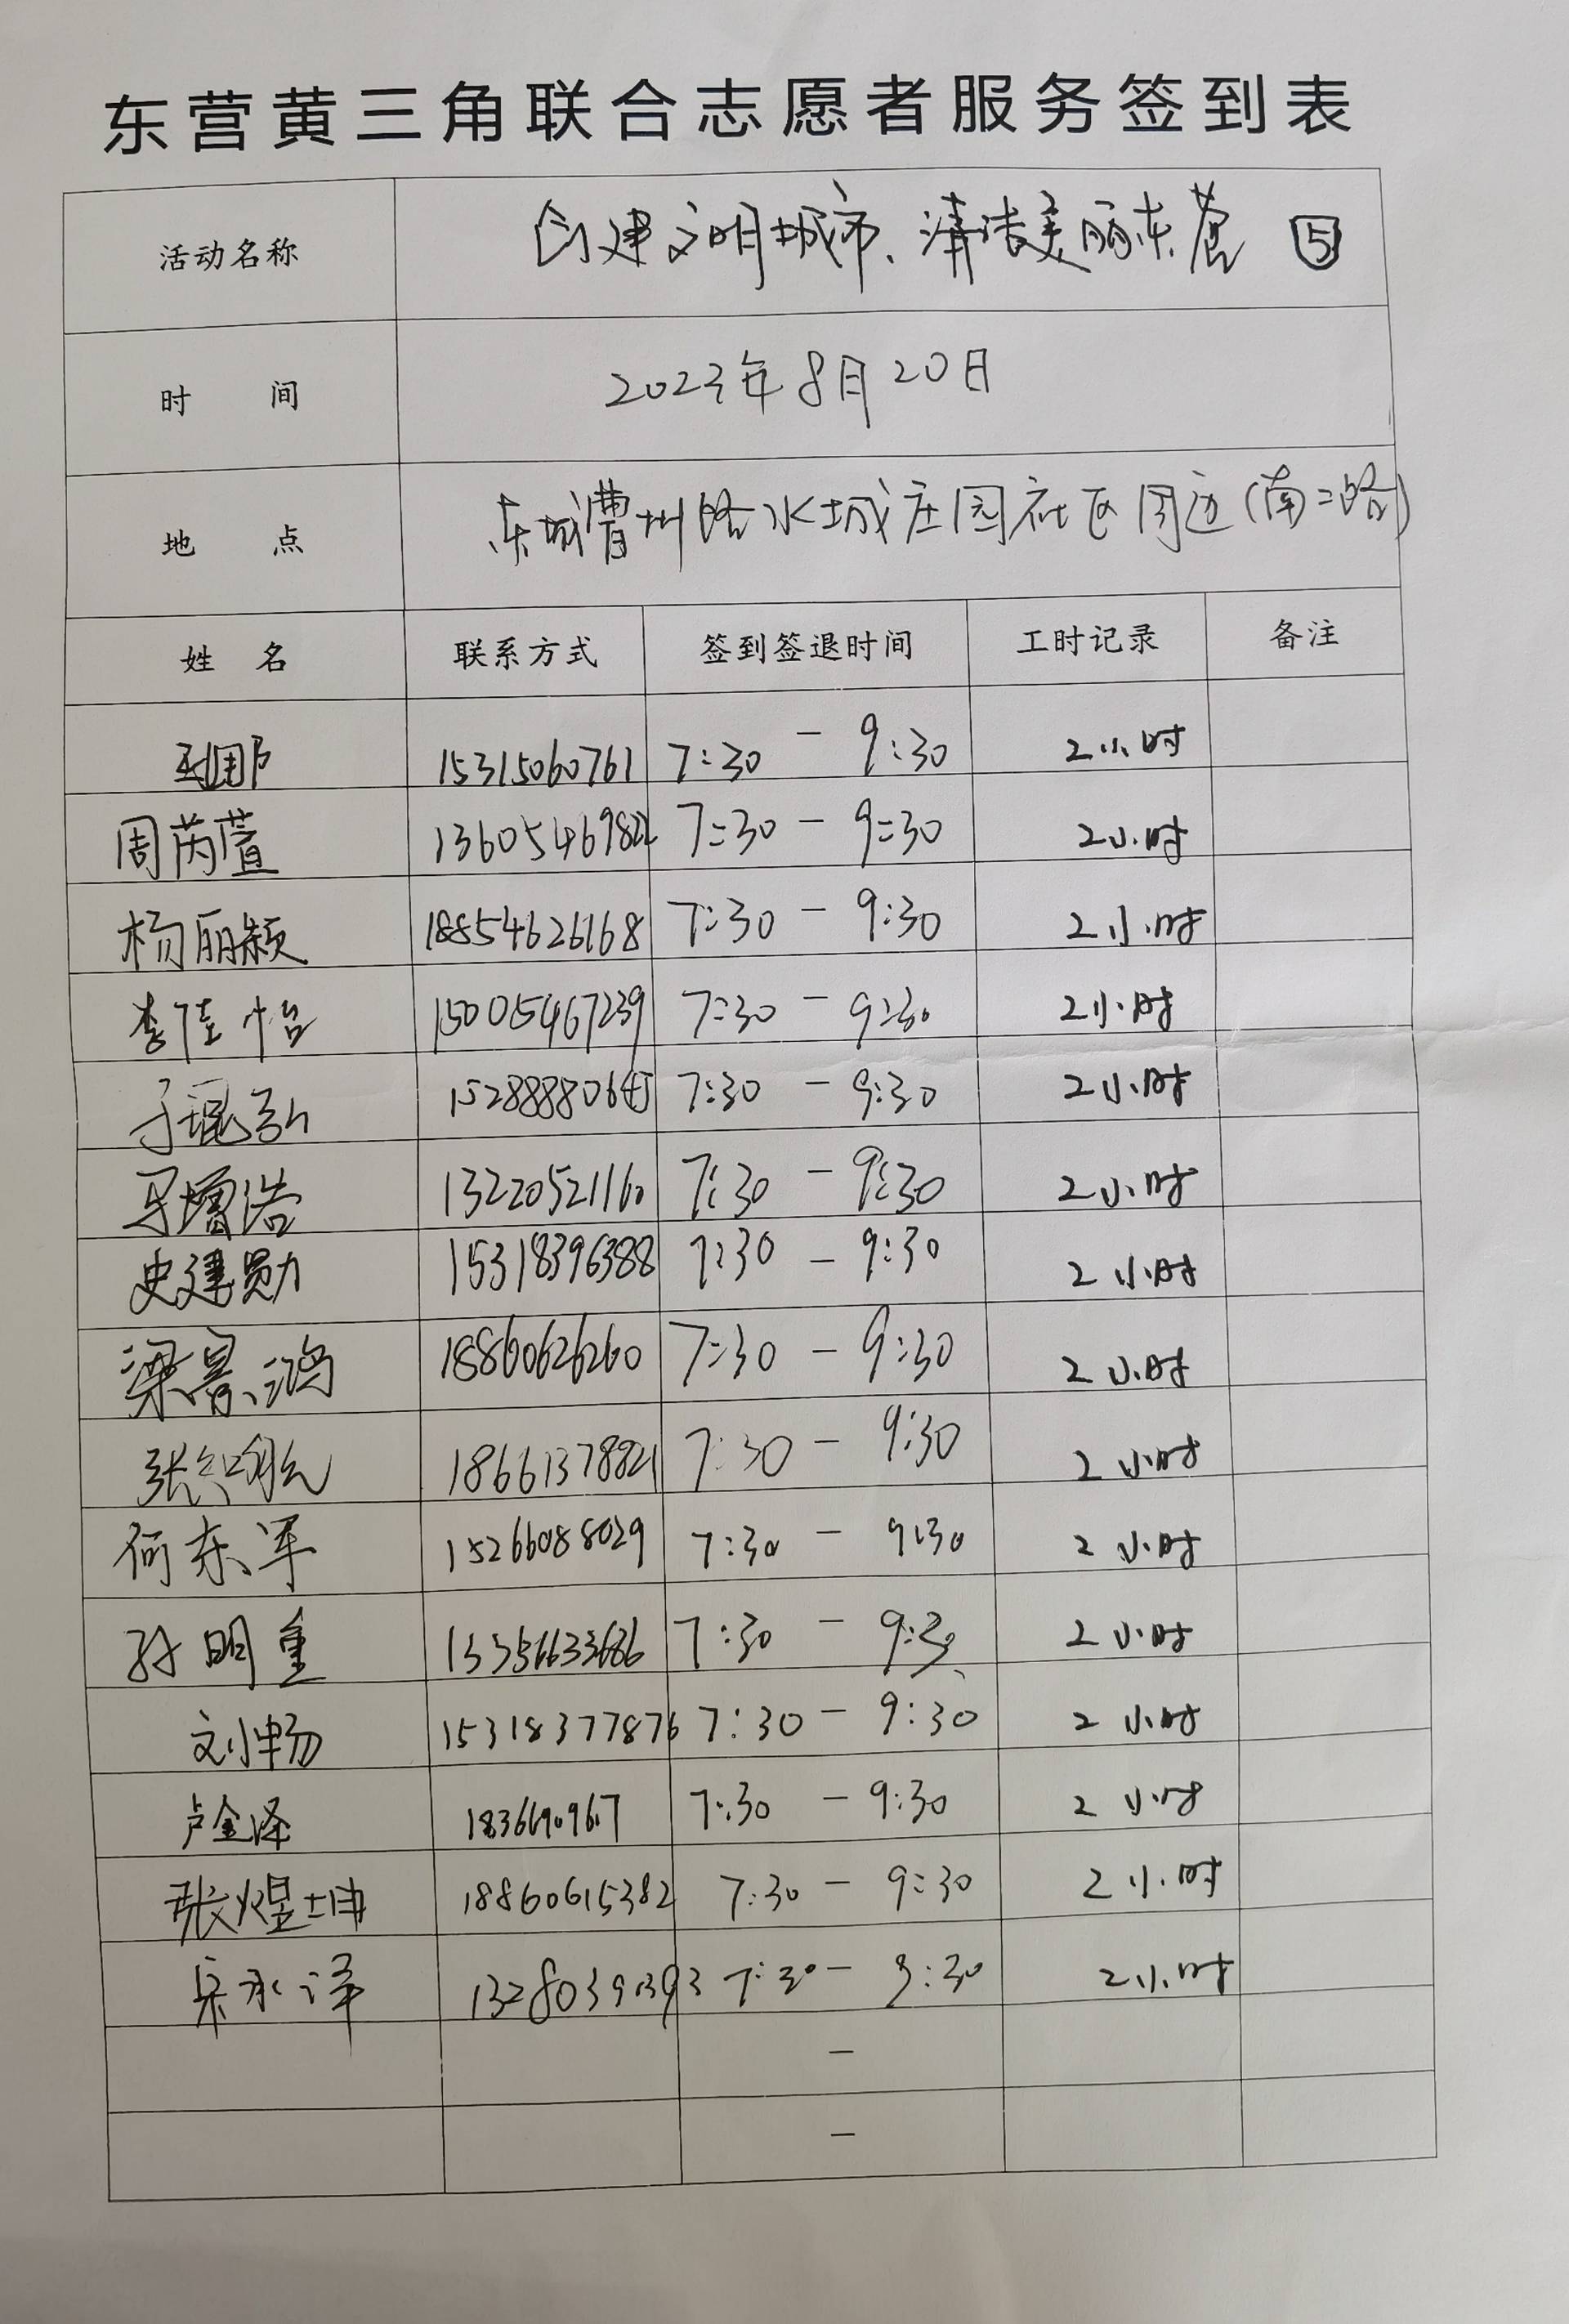 东营黄三角联合志愿者服务签到表
活动名称 创建文明城市、清洁美丽东营 5
时 间 2023年8月20日
地 点 东城曹州路水城庄园社区周边(南二路)
姓 名 联系方式 签到签退时间 工时记录 备注
15315060761 7:30 - 9:30 2小时
周芮萱 13605469822 7:30 - 9:30 2小时
杨丽颖 18854626168 7:30 - 9:30 2小时
李佳怡 15005467239 7:30 - 9:30 2小时
于琨弘 15288880645 7:30 - 9:30 2小时
马增浩 13220521160 7:30 - 9:30 2小时
史建勋 15318396388 7:30 - 9:30 2小时
梁景鸿 18860626260 7:30 - 9:30 2小时
张智航 18661378821 7:30 - 9:30 2小时
何东军 15266088029 7:30 - 9:30 2小时
孙明重 7:30 - 9:30 2小时
刘畅 15318377876 7:30 - 9:30 2小时
卢金泽 7:30 - 9:30 2小时
张煜坤 18860615382 7:30 - 9:30 2小时
永泽 7:30 - 9:30 2小时
-
-